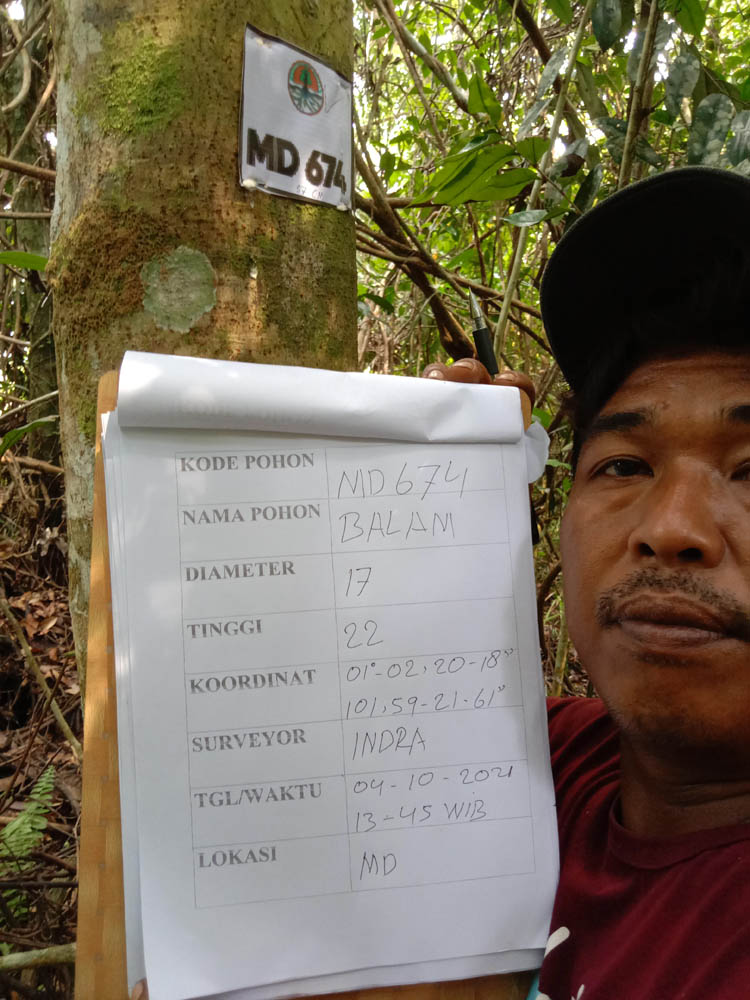 MD 674
KODE POHON MD 674
NAMA POHON BALAM
DIAMETER 17
TINGGI 22
KOORDINAT 01°-02,20-18"
101,59-21-61"
SURVEYOR INDRA
TGL/WAKTU 04-10-2021
13-45 WIB
LOKASI MD